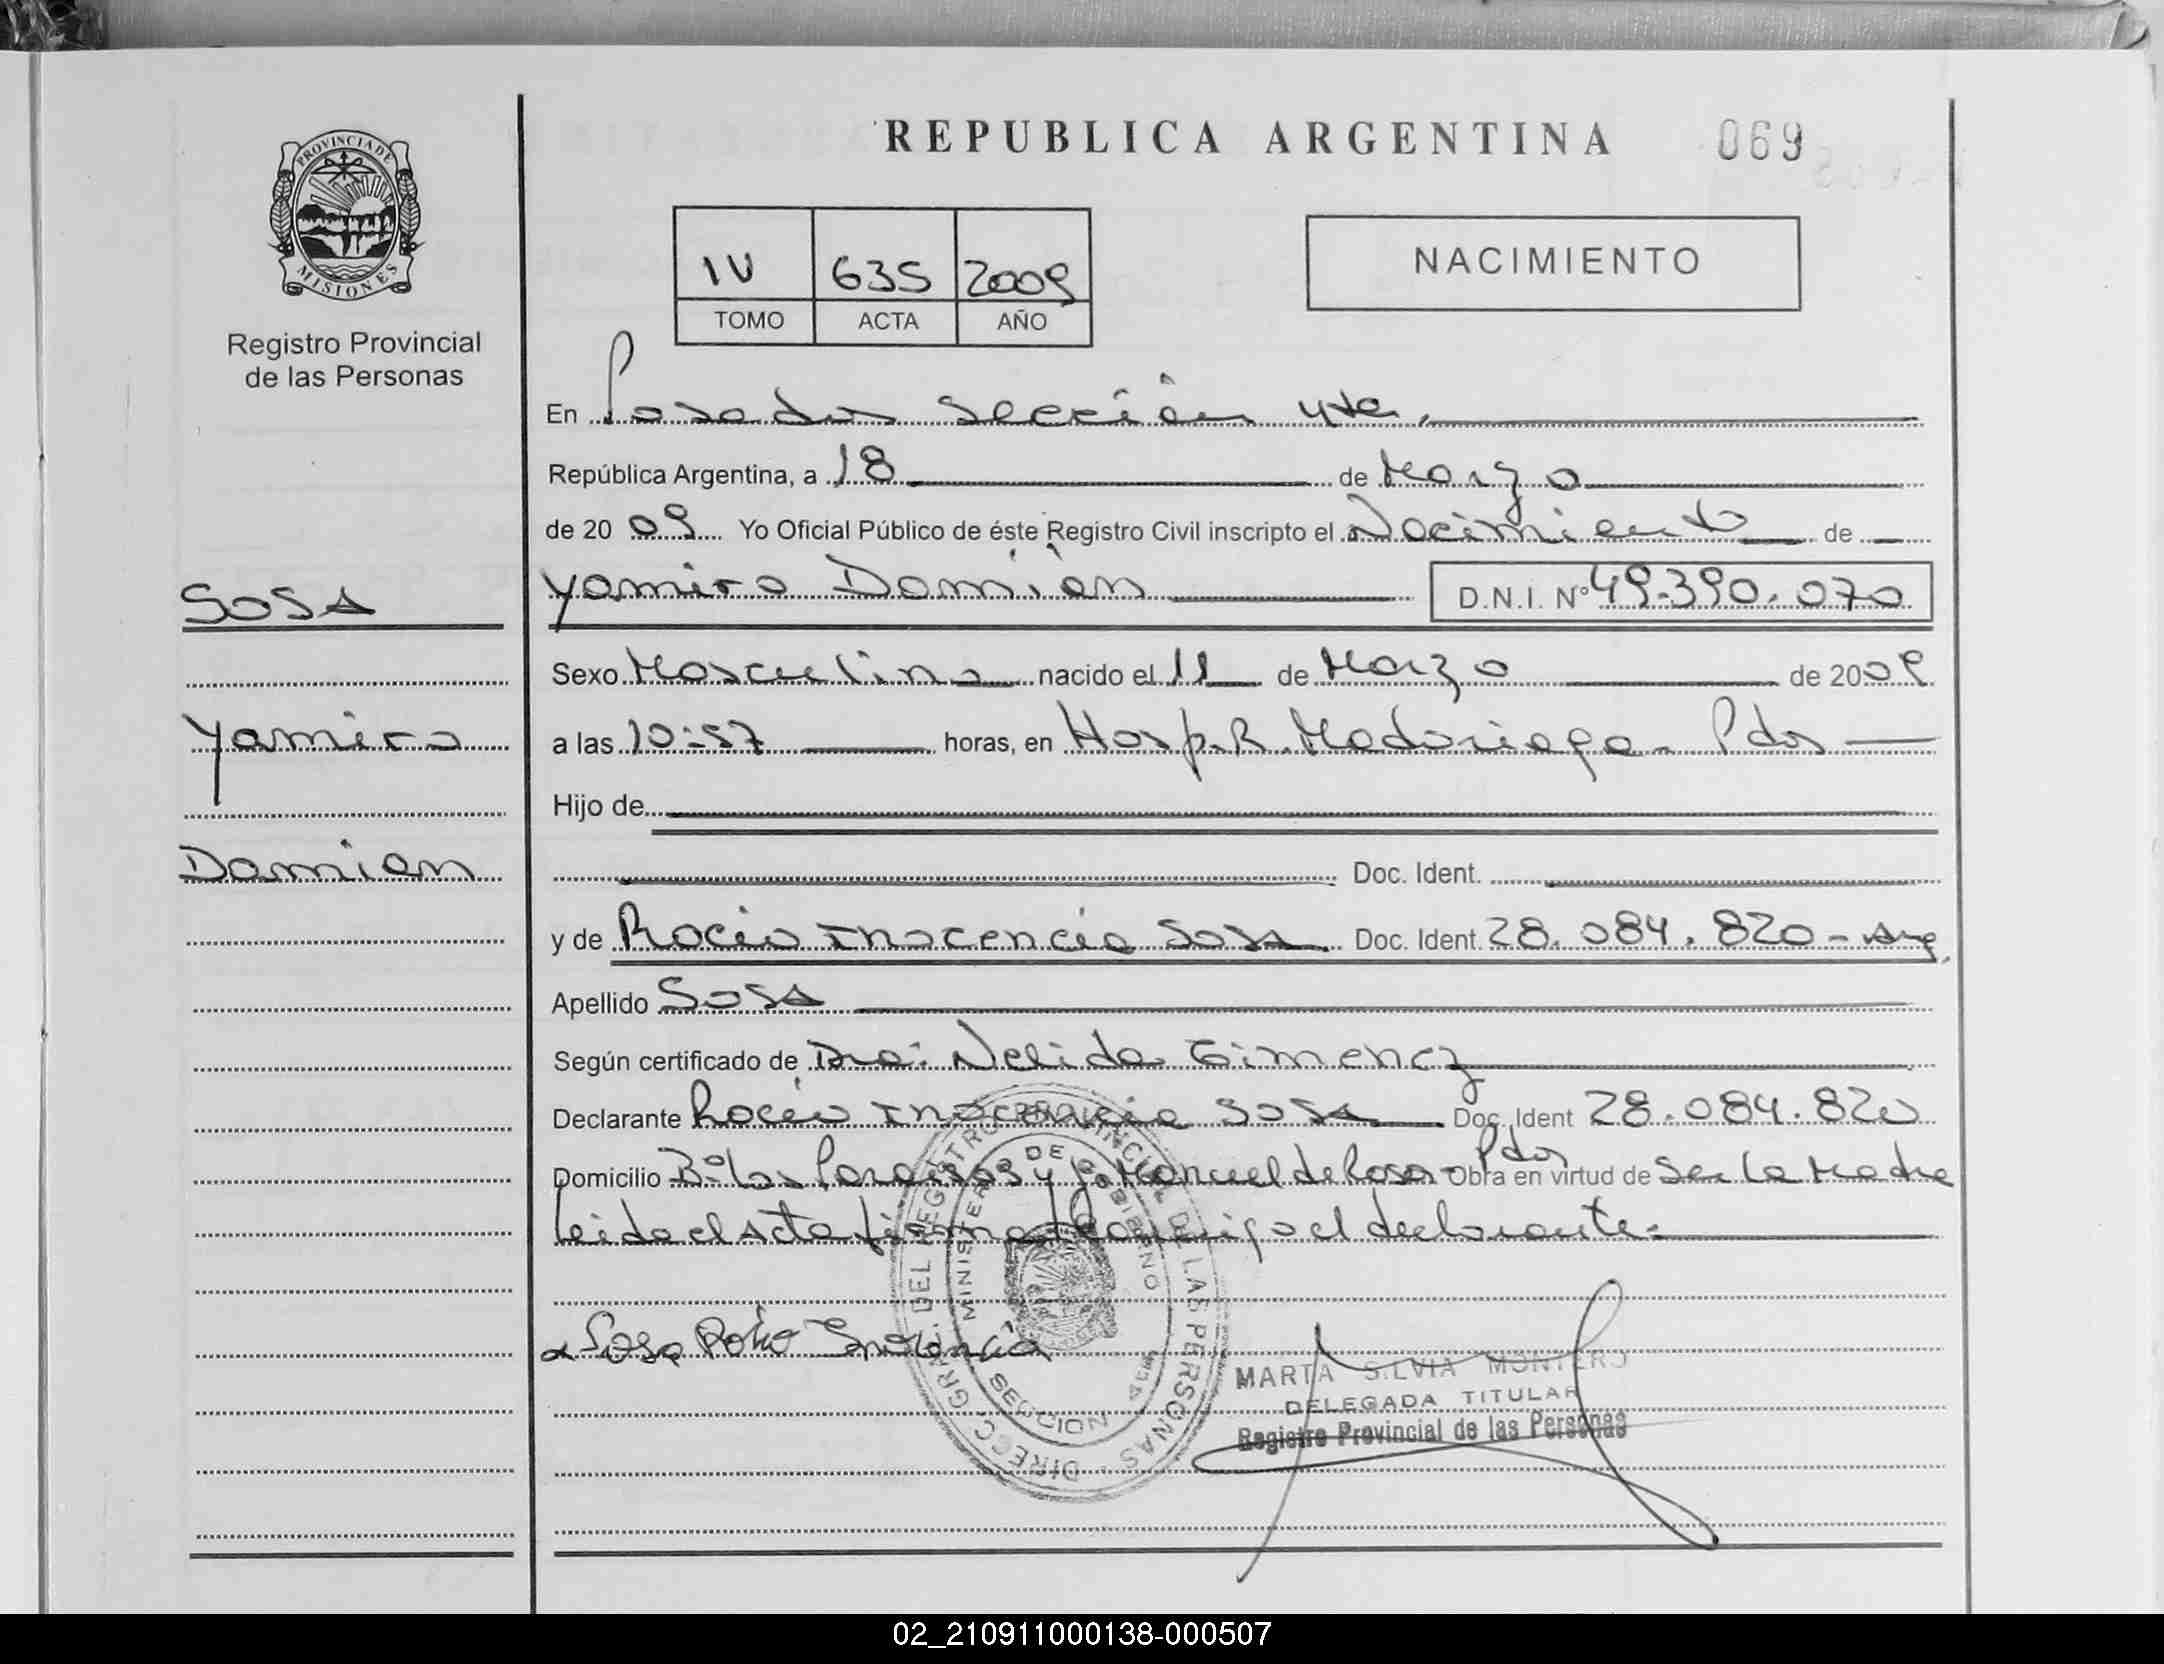 REPUBLICA ARGENTINA 069
PROVINCIA DE MISIONES
Registro Provincial
de las Personas
IV 635 2009
TOMO ACTA AÑO
NACIMIENTO
En Posadas Sección 4ta.
República Argentina, a 18 de Marzo
de 20 09 Yo Oficial Público de éste Registro Civil inscripto el Nacimiento de
SOSA
Yamiro Damián D.N.I. Nº 49.390.070
Sexo Masculino nacido el 11 de Marzo de 2009
Yamiro
a las 10:57 horas, en Hosp. R. Madariaga - Pdas
Hijo de
Damian
Doc. Ident.
y de Rocio Inocencia SOSA Doc. Ident. 28.084.820 - Arg.
Apellido SOSA
Según certificado de Dra. Nelida Gimenez
Declarante Rocio Inocencia SOSA Doc. Ident 28.084.820
Domicilio Bº Los Paraisos y Manuel de Rosa - Pdas Obra en virtud de Ser la Madre
Leida el Acta firma conmigo el declarante.
Sosa Rocio Inocencia
DIRECC. GRAL. DEL REGISTRO PROVINCIAL DE LAS PERSONAS
MINISTERIO DE GOBIERNO
SECCION 4ta
MARTA SILVIA MONTERO
DELEGADA TITULAR
Registro Provincial de las Personas
02_210911000138-000507